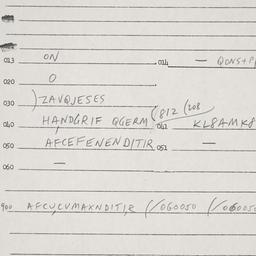 013 ON 014 — QONS+P
020 O
030 ZAVQJESES
(812 (208
040 HANDGRIF QGERM 042 KL8AMK8
050 AFCEFENENDITIR 051 —
060 —
900 AFCUCVMAXNDITIR (/060050 (/060050